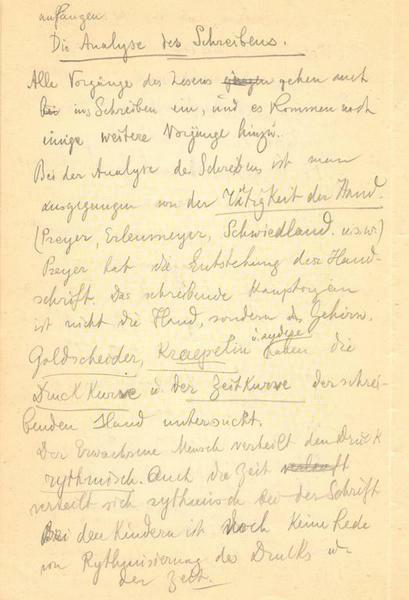 anfangen.
Die Analyse des Schreibens.
Alle Vorgänge des Lesens gehen auch
ins Schreiben ein, und es kommen noch
einige weitere Vorgänge hinzu.
Bei der Analyse des Schreibens ist man
ausgegangen von der Tätigkeit der Hand.
(Preyer, Erlenmeyer, Schwiedland u.s.w.)
Preyer hat die Entstehung der Hand-
schrift. Das schreibende Hauptorgan
ist nicht die Hand, sondern das Gehirn.
Goldscheider, Kraepelin u. andere haben die
Druckkurve u. der Zeitkurve der schrei-
benden Hand untersucht.
Der Erwachsene Mensch verteilt den Druck
rytmisch. Auch die Zeit
verteilt sich rytmisch bei der Schrift
Bei den Kindern ist noch keine Rede
von Rytmisierung des Drucks u.
der Zeit.